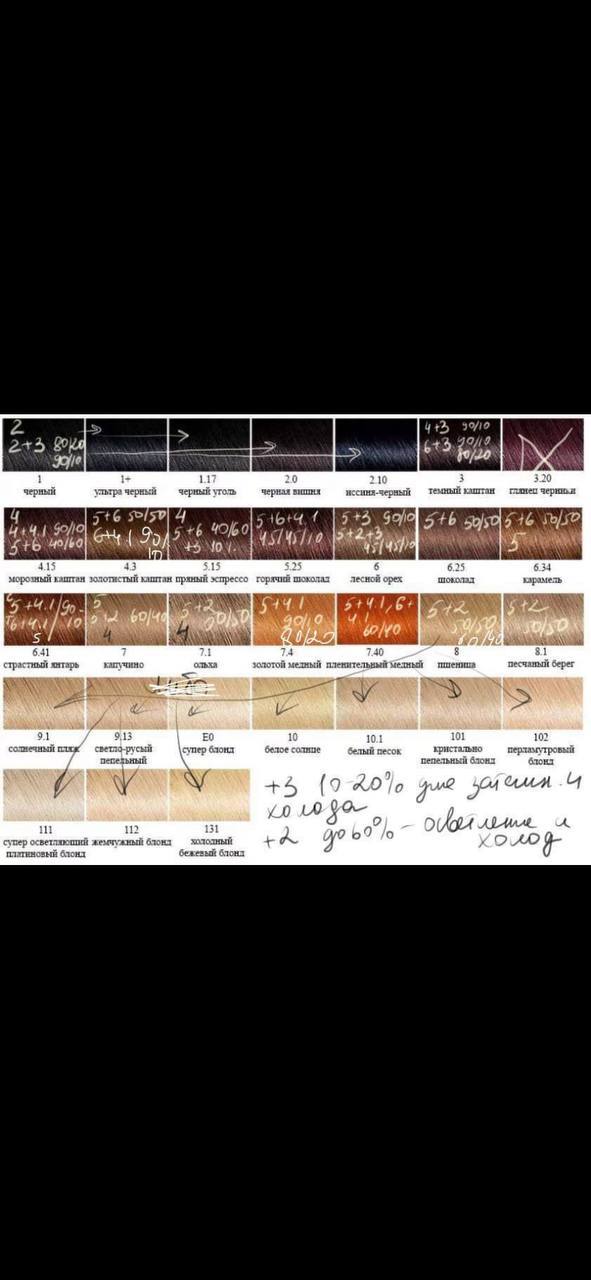 2
2+3 80/20
90/10
4+3 90/10
6+3 90/10
80/20
1 1+ 1.17 2.0 2.10 3 3.20
черный ультра черный черный уголь черная вишня иссиня-черный темный каштан глянец
4 5+6 50/50 4 5+6+4.1 5+3 90/10 5+6 50/50 5+6 50/50
4+4.1 90/10 6+4.1 90/10 5+6 40/60 45/45/10 5+2+3 5
5+6 40/60 +3 10%. 45/45/10
4.15 4.3 5.15 5.25 6 6.25 6.34
морозный каштан золотистый каштан пряный эспрессо горячий шоколад лесной орех шоколад карамель
5+4.1/90- 5 5+2 5+4.1 5+4.1, 6+ 5+2 5+2
6+4.1/-10 +2 60/40 50/50 90/10 4.1 50/50 50/50
5 4 4 80/20 60/40 60/40
6.41 7 7.1 7.4 7.40 8 8.1
страстный янтарь капучино ольха золотой медный пленительный медный пшеница песчаный берег
9.1 9.13 E0 10 10.1 101 102
солнечный пляж светло-русый супер блонд белое солнце белый песок кристально перламутровый
пепельный пепельный блонд блонд
111 112 131
супер осветляющий жемчужный блонд холодный
платиновый блонд бежевый блонд
+3 10-20% для затемн. и
холода
+2 до 60% - осветление и
холод